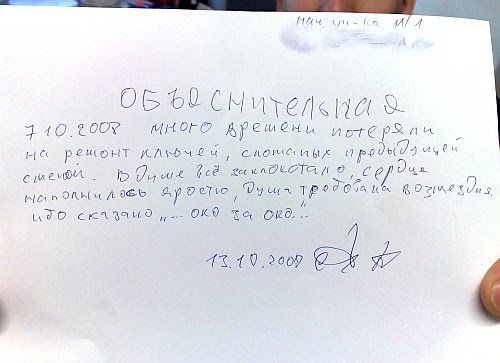 нач. уч-ка п/1
ОБЪЯСНИТЕЛЬНАЯ
7 10.2008 много времени потеряли
на ремонт ключей, сломаных предыдущей
сменой. В душе всё заклокотало, сердце
наполнилось яростю, душа требовала возмездия.
ибо сказано "... око за око..."
13.10.2008